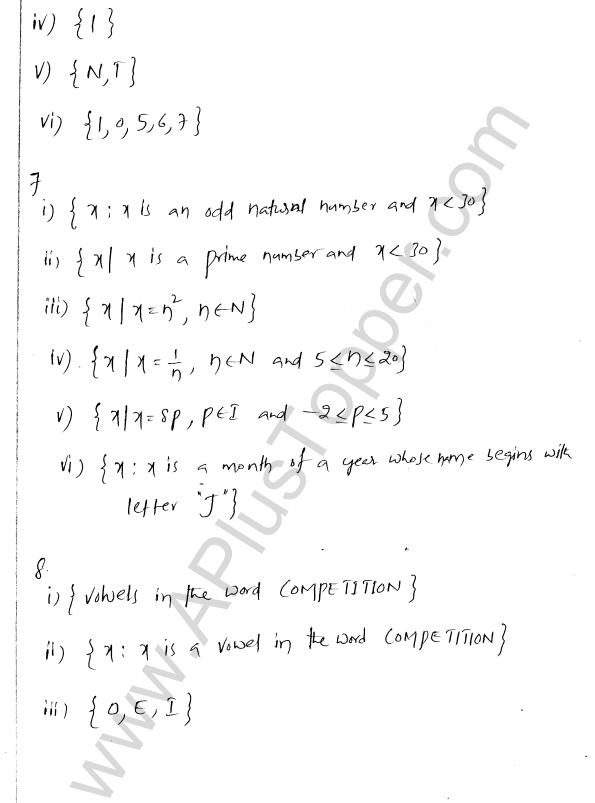 iv) {1}
v) {N,T}
vi) {1,0,5,6,7}
7
i) {x : x is an odd natural number and x<30}
ii) {x| x is a prime number and x<30}
iii) {x | x=n², n∈N}
iv) {x | x=1/n, n∈N and 5≤n≤20}
v) {x|x=8p, p∈I and -2≤p≤5}
vi) {x : x is a month of a year whose name begins with
letter "J"}
8.
i) {Vowels in the word COMPETITION}
ii) {x : x is a vowel in the word COMPETITION}
iii) {O, E, I}
www.APlusTopper.com